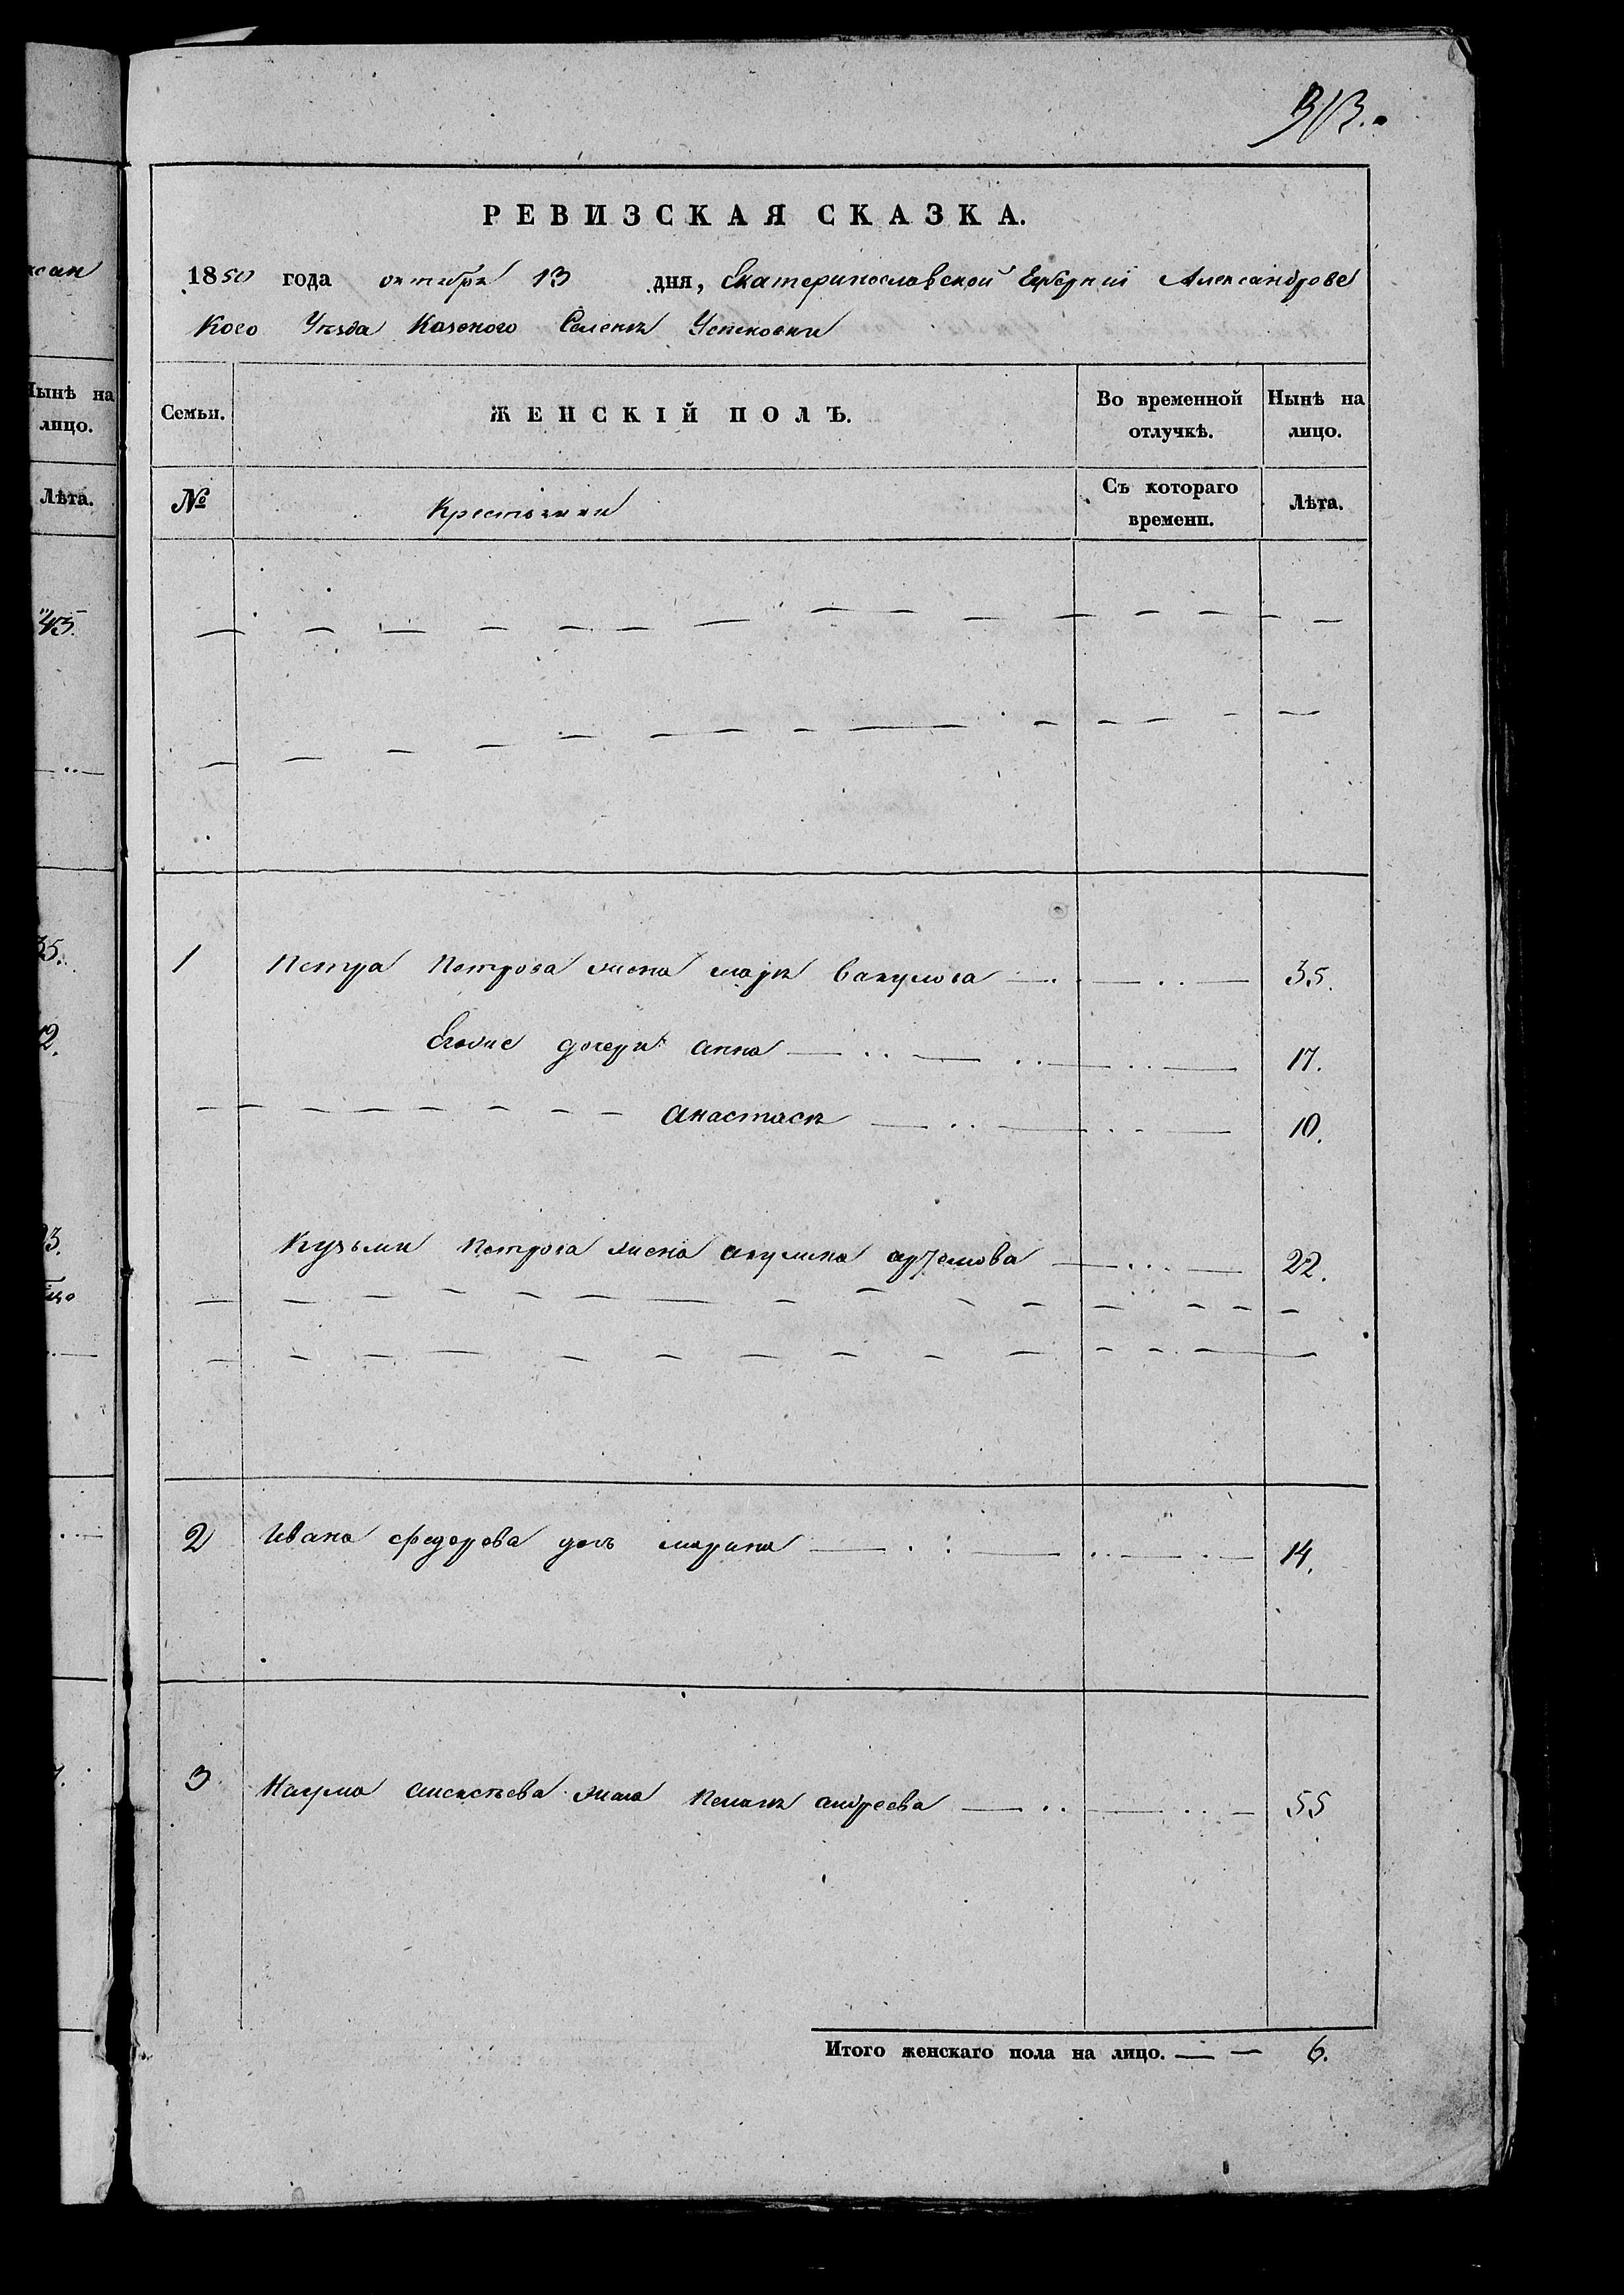 313.
РЕВИЗСКАЯ СКАЗКА.
1850 года октября 13 дня, Екатеринославской Губернии Александровс
кого Уезда Казеного Селеня Успеновки
Семьи. ЖЕНСКІЙ ПОЛЪ. Во временной отлучкѣ. Нынѣ на лицо.
№ Крестьянки Съ котораго времени. Лѣта.
1 Петра Петрова жена маря вакулова 35.
Егоже дочери анна 17.
Анастася 10.
Кузьми Петрова жена акулина артемова 22.
2 Ивана федорова дочь марина 14.
3 Наума жена андреева 55
Итого женскаго пола на лицо. 6.
ксан
Нынѣ на
лицо.
Лѣта.
45.
35.
12.